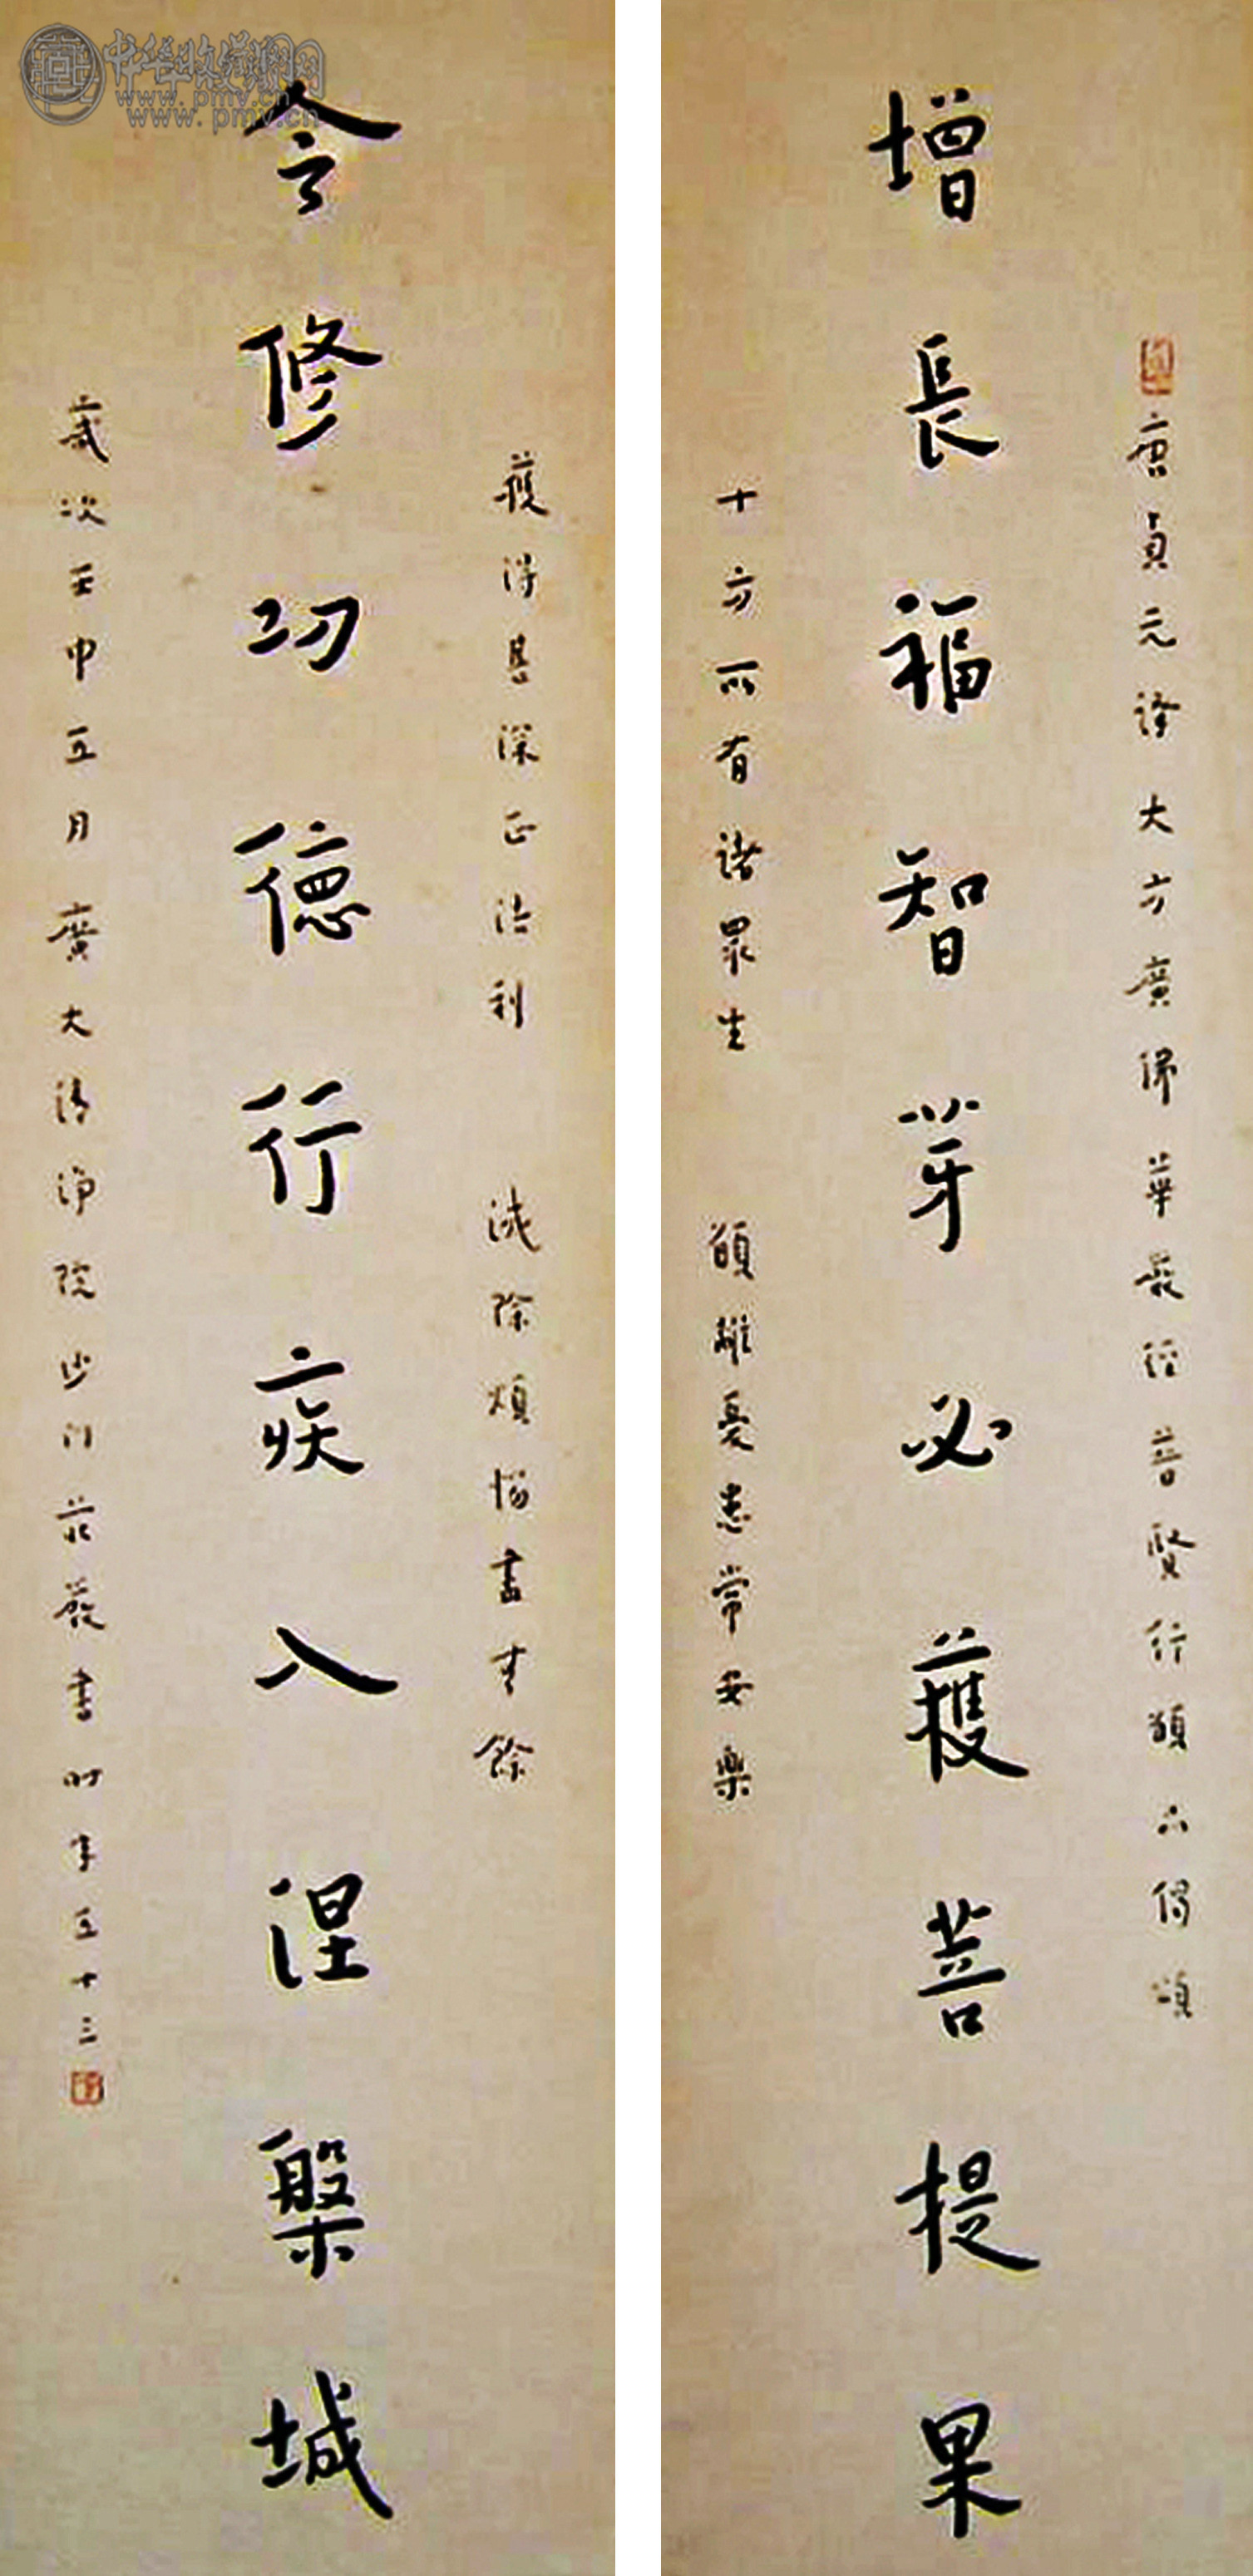 唐貞元譯大方廣佛華嚴經普賢行願品偈頌
增長福智芽必獲菩提果
十方所有諸眾生 願離憂患常安樂
獲得甚深正法利 滅除煩惱盡無餘
令修功德行疾入涅槃城
歲次壬申五月廣大清淨院沙門莊嚴書時年五十三
中华收藏网
www.pmv.cn
www.pmv.cn